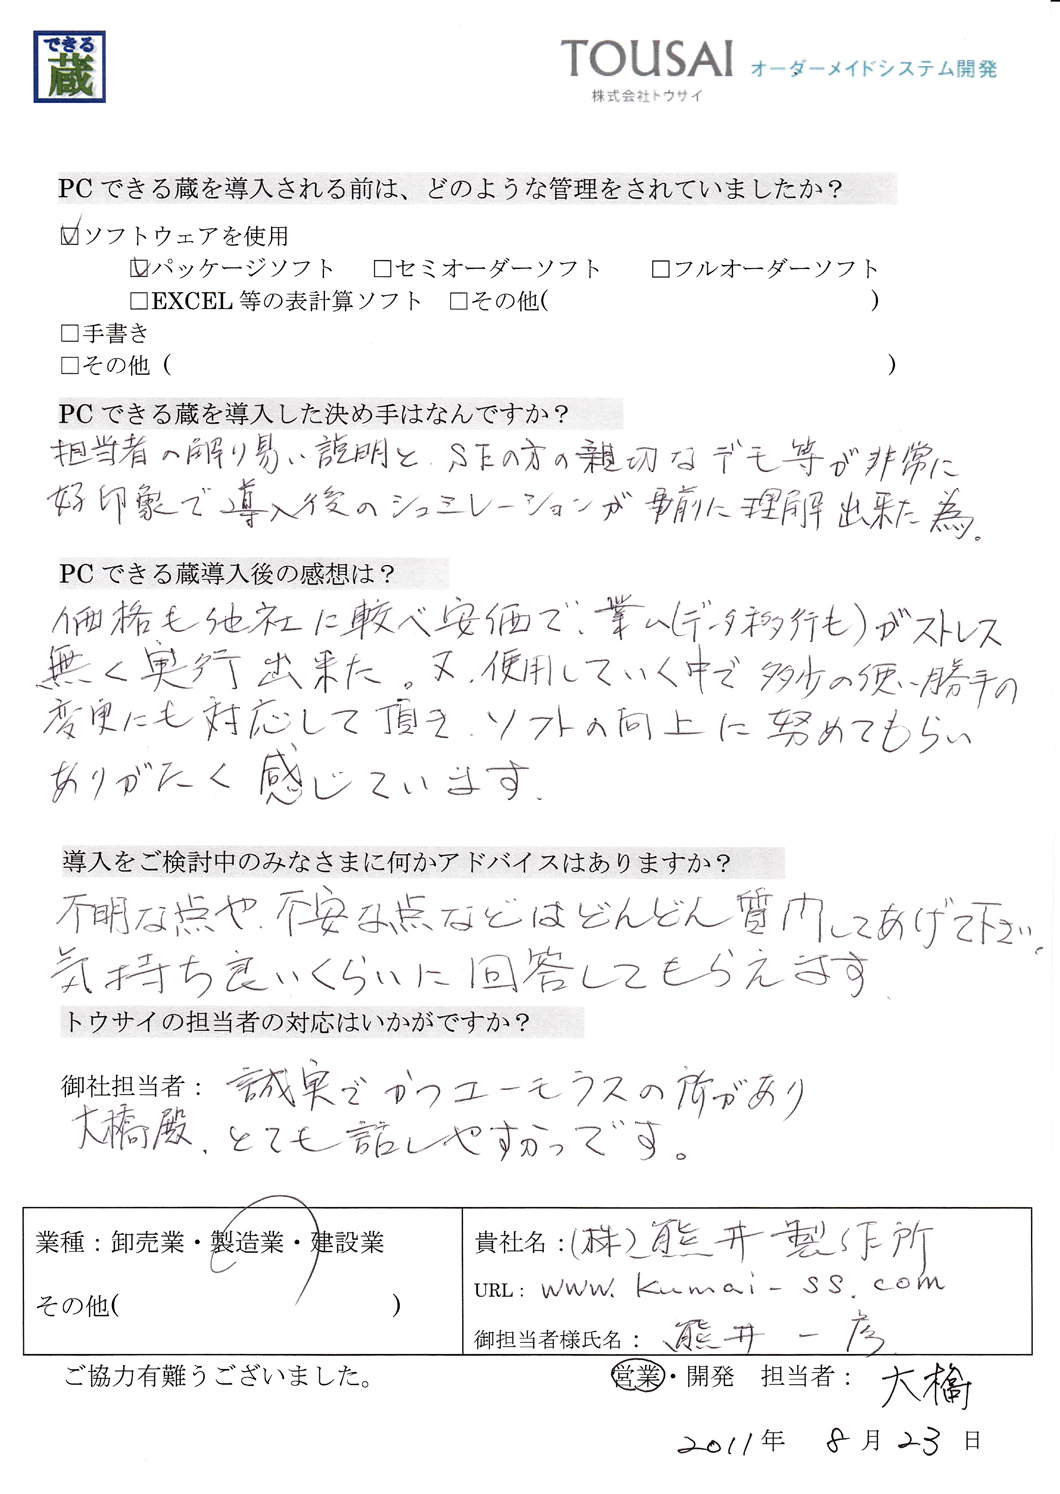 できる
蔵
TOUSAI オーダーメイドシステム開発
株式会社トウサイ
PCできる蔵を導入される前は、どのような管理をされていましたか？
☑ソフトウェアを使用
☑パッケージソフト □セミオーダーソフト □フルオーダーソフト
□EXCEL等の表計算ソフト □その他( )
□手書き
□その他 ( )
PCできる蔵を導入した決め手はなんですか？
担当者の解り易い説明と、SEの方の親切なデモ等が非常に
好印象で導入後のシュミレーションが事前に理解出来た為。
PCできる蔵導入後の感想は？
価格も他社に較べ安価で、業ム(データ移行も)がストレス
無く実行出来た。又、使用していく中で多少の使い勝手の
変更にも対応して頂き、ソフトの向上に努めてもらい
ありがたく感じています。
導入をご検討中のみなさまに何かアドバイスはありますか？
不明な点や、不安な点などはどんどん質問してあげて下さい。
気持ち良いくらいに回答してもらえます。
トウサイの担当者の対応はいかがですか？
御社担当者： 誠実でかつユーモラスの所があり
大橋殿、とても話しやすかっです。
業種：卸売業・製造業・建設業
その他( )
貴社名：(株)熊井製作所
URL：www.kumai-ss.com
御担当者様氏名：熊井一彦
ご協力有難うございました。
営業・開発 担当者：大橋
2011年 8月23日